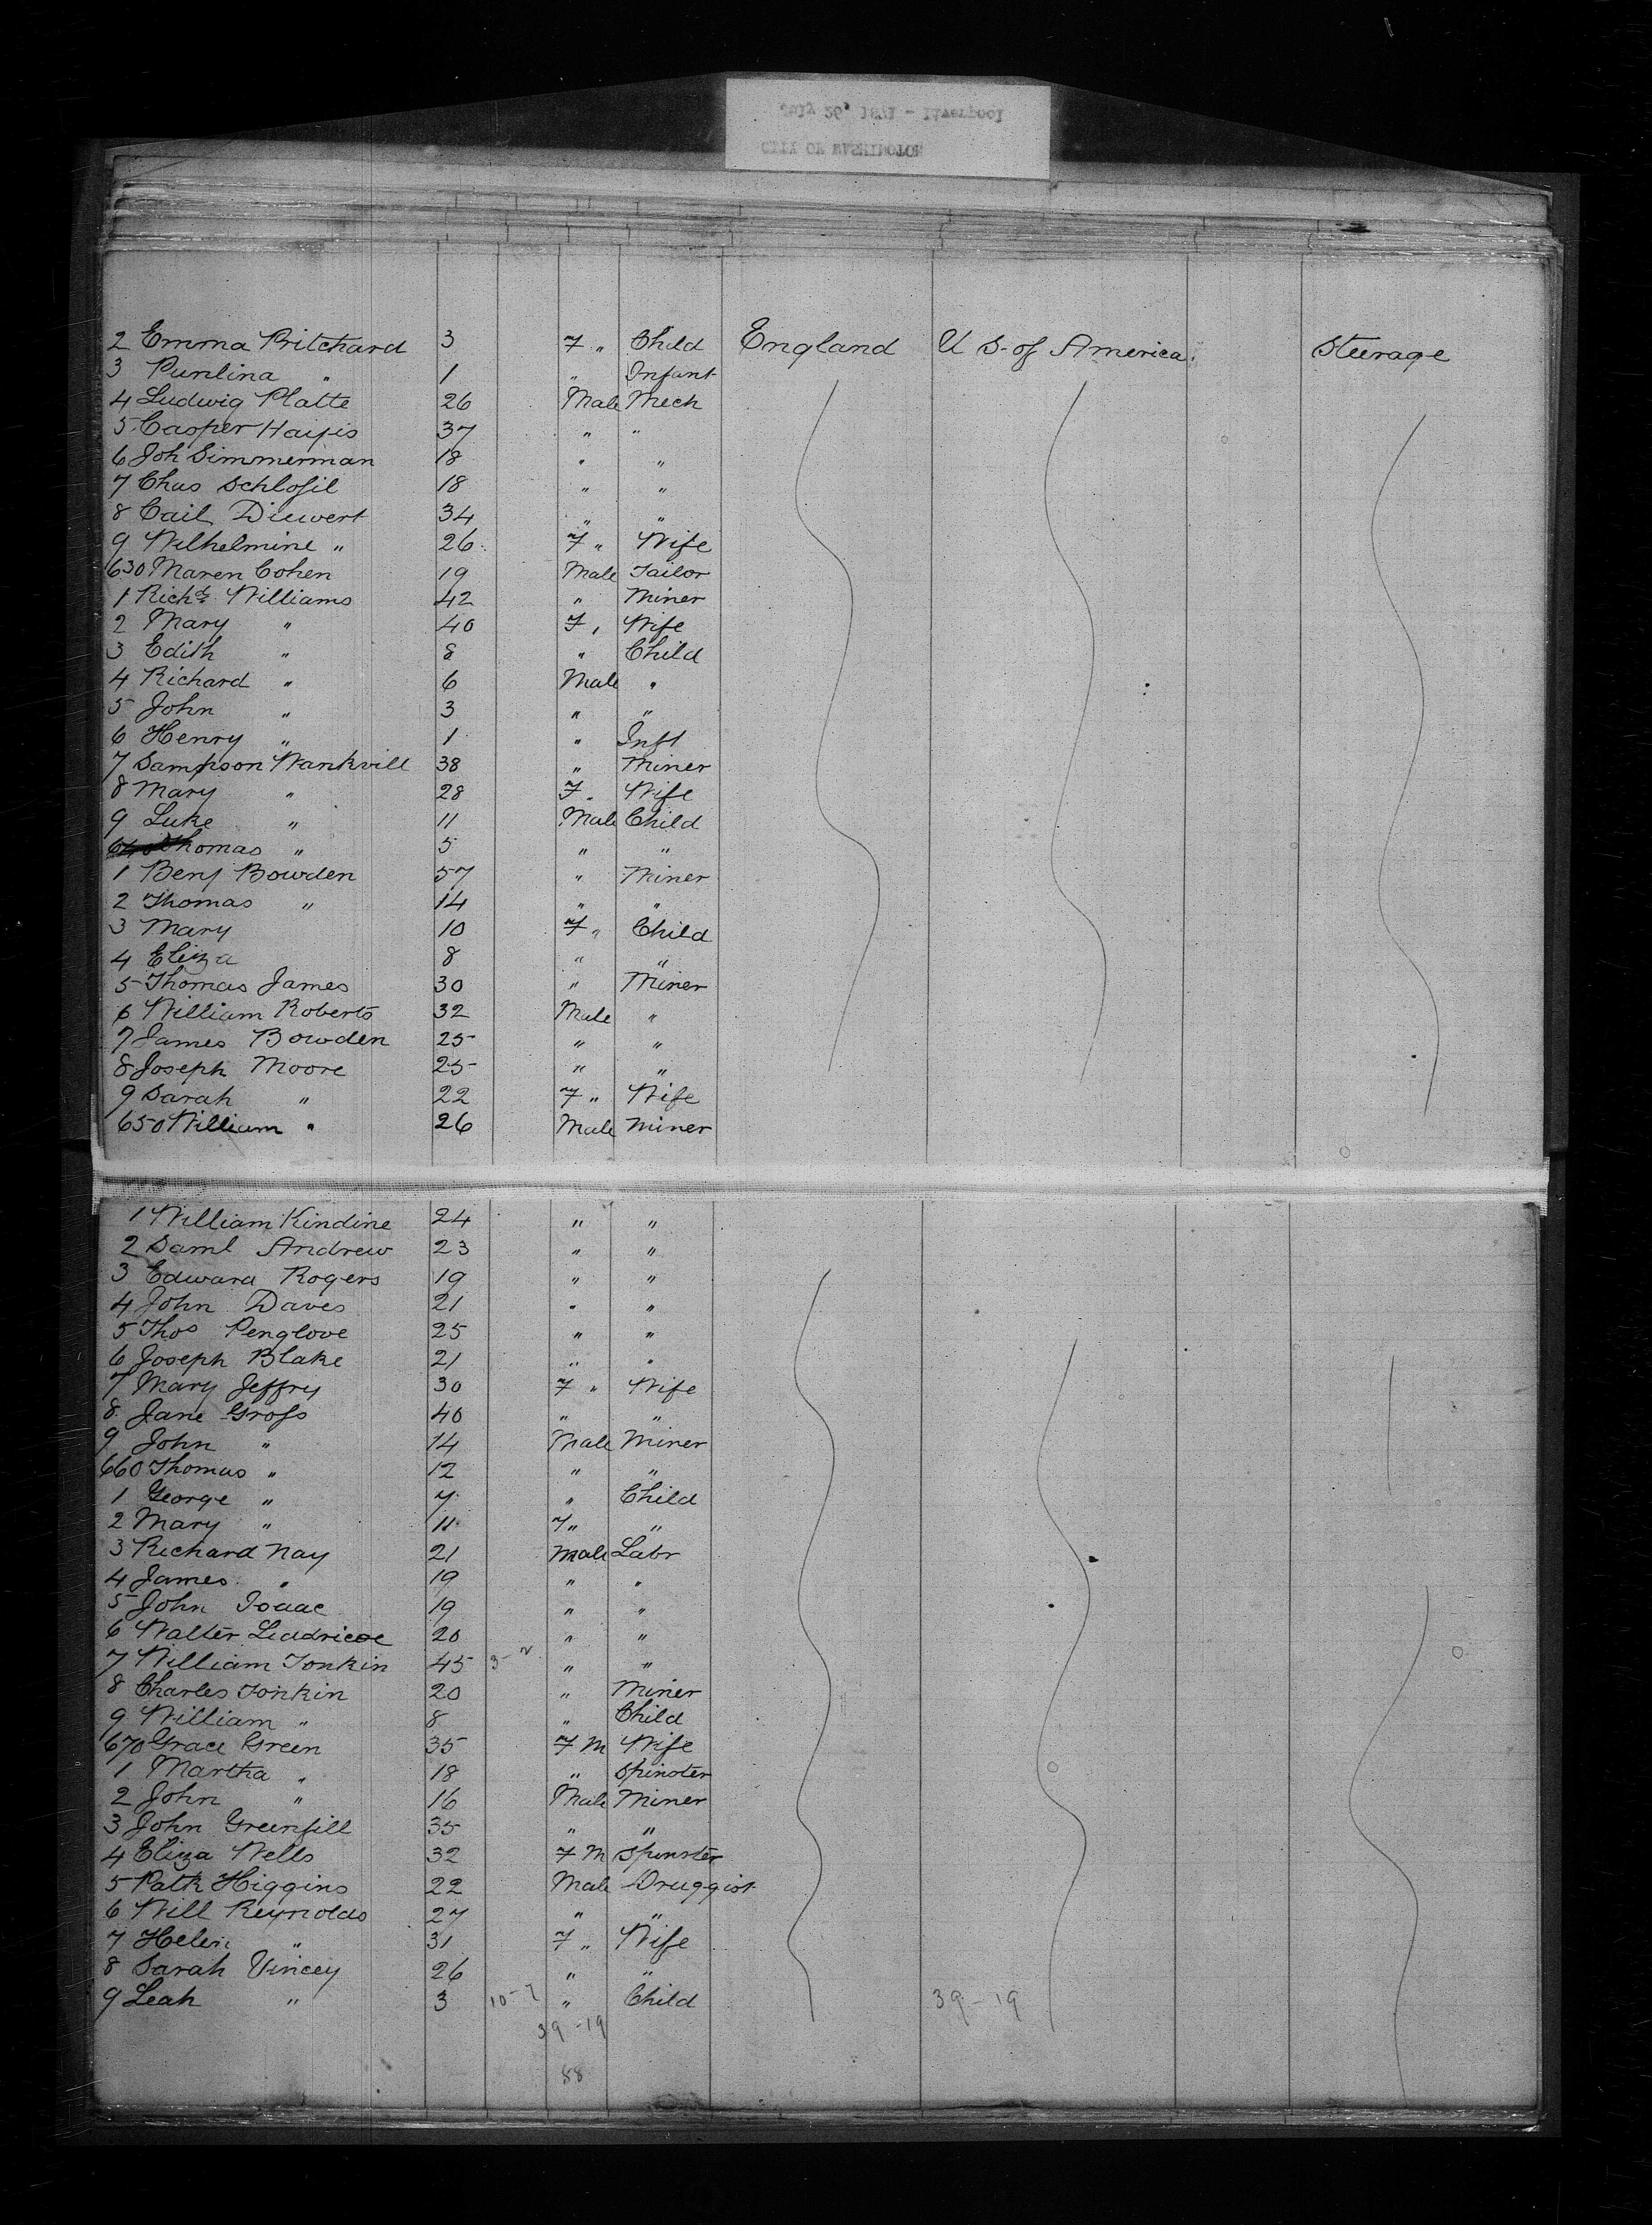 July 26, 1871 - Liverpool
CITY OF WASHINGTON
2 Emma Pritchard 3 F " Child England U S of America. Steerage
3 Punlina " 1 " Infant
4 Ludwig Platte 26 Male Mech
5 Casper Hayis 37 " "
6 Joh Simmerman 18 " "
7 Chas Schlosil 18 " "
8 Cail Diewert 34 " "
9 Wilhelmine " 26 F " Wife
630 Maren Cohen 19 Male Tailor
1 Richd Williams 42 " Miner
2 Mary " 40 F " Wife
3 Edith " 8 " Child
4 Richard " 6 Male "
5 John " 3 " "
6 Henry " 1 " Inft
7 Sampson Wankvill 38 " Miner
8 Mary " 28 F " Wife
9 Luke " 11 Male Child
640 Thomas " 5 " "
1 Benj Bowden 57 " Miner
2 Thomas " 14 " "
3 Mary 10 F " Child
4 Eliza 8 " "
5 Thomas James 30 " Miner
6 William Roberts 32 Male "
7 James Bowden 25 " "
8 Joseph Moore 25 " "
9 Sarah " 22 F " Wife
650 William " 26 Male Miner
1 William Kindine 24 " "
2 Saml Andrew 23 " "
3 Edward Rogers 19 " "
4 John Daves 21 " "
5 Thos Penglove 25 " "
6 Joseph Blake 21 " "
7 Mary Jeffry 30 F " Wife
8 Jane Gross 40 " "
9 John " 14 Male Miner
660 Thomas " 12 " "
1 George " 7 " Child
2 Mary " 11 F " "
3 Richard Nay 21 Male Labr
4 James " 19 " "
5 John Isaac 19 " "
6 Walter 20 " "
7 William Tonkin 45 " "
8 Charles Tonkin 20 " Miner
9 William " 8 " Child
670 Grace Green 35 F M Wife
1 Martha " 18 " Spinster
2 John " 16 Male Miner
3 John Greenfill 35 " "
4 Eliza Wells 32 F M Spinster
5 Patk Higgins 22 Male Druggist
6 Will Reynolds 27 " "
7 Helen " 31 F " Wife
8 Sarah Vincey 26 " "
9 Leah " 3 10-7 " Child 39-19
39-19
58